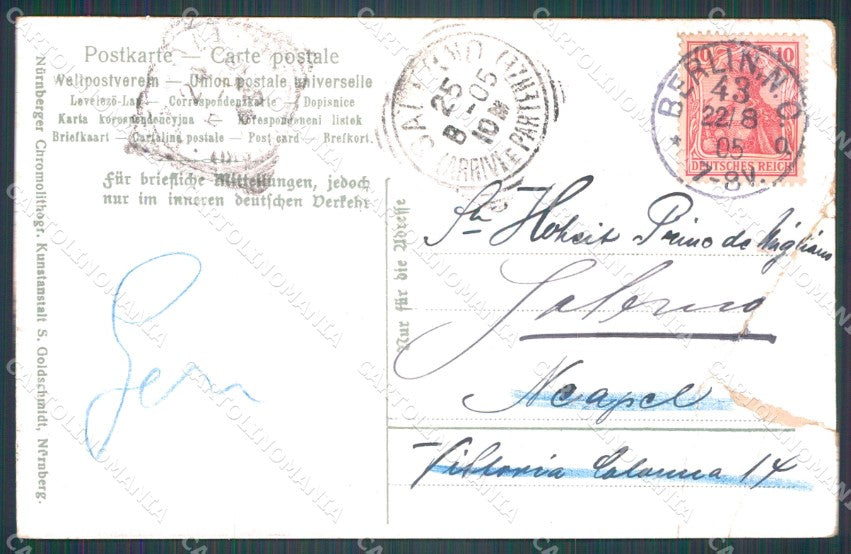 Postkarte — Carte postale
Weltpostverein — Union postale universelle
Levelező-Lap — Correspondenzkarte — Dopisnice
Karta korespondencyjna — Korespondenční lístek
Briefkaart — Cartolina postale — Post card — Brefkort.
Für briefliche Mitteilungen, jedoch
nur im inneren deutschen Verkehr
Nürnberger Chromolithogr. Kunstanstalt S. Goldschmidt, Nürnberg.
Nur für die Adresse
SALERNO
25
8-05
10M
(ARRIVI E PARTENZE)
BERLIN, N.O.
43
22/8
05
7-8V.
10
10
DEUTSCHES REICH
Hoheit Principe de
Salerno
Neapel
Vittoria Colonna 14
CARTOLINOMANIA